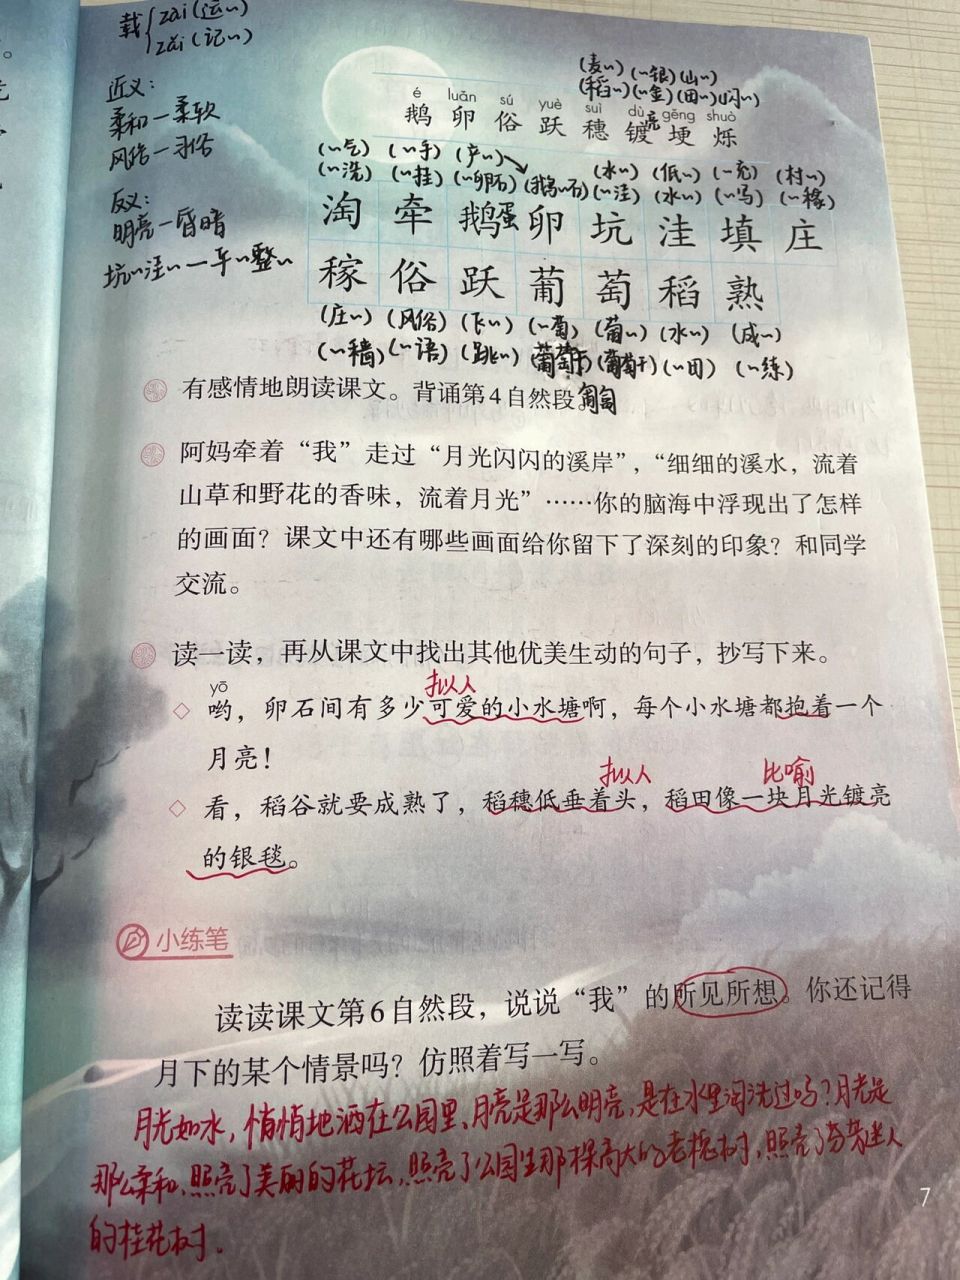 载{zài(运~)
zǎi(记~)
近义:
柔和—柔软
风俗—习俗
反义:
明亮—昏暗
坑~洼~—平~整~
(麦~)(~银)(山~)
(稻~)(~金)(田~)(闪~)
é luǎn sú yuè suì dù gěng shuò
鹅 卵 俗 跃 穗 镀亮 埂 烁
(~气) (~手) (产~)
(~洗) (~挂) (~卵石) (鹅~石) (水~) (低~) (~充) (村~)
(~洼) (水~) (~写) (~稼)
淘 牵 鹅蛋 卵 坑 洼 填 庄
稼 俗 跃 葡 萄 稻 熟
(庄~) (风俗) (飞~) (~萄) (葡~) (水~) (成~)
(~穑) (~语) (跳~) (葡萄干) (葡萄干) (~田) (~练)
有感情地朗读课文。背诵第4自然段。
阿妈牵着“我”走过“月光闪闪的溪岸”，“细细的溪水，流着
山草和野花的香味，流着月光”……你的脑海中浮现出了怎样
的画面？课文中还有哪些画面给你留下了深刻的印象？和同学
交流。
读一读，再从课文中找出其他优美生动的句子，抄写下来。
yō
拟人
◇ 哟，卵石间有多少可爱的小水塘啊，每个小水塘都抱着一个
月亮！
拟人 比喻
◇ 看，稻谷就要成熟了，稻穗低垂着头，稻田像一块月光镀亮
的银毯。
小练笔
读读课文第6自然段，说说“我”的所见所想。你还记得
月下的某个情景吗？仿照着写一写。
月光如水，悄悄地洒在公园里、月亮是那么明亮，是在水里淘洗过吗？月光是
那么柔和、照亮了美丽的花坛，照亮了公园里那棵高大的老槐树，照亮了芬芳迷人
的桂花树．
7